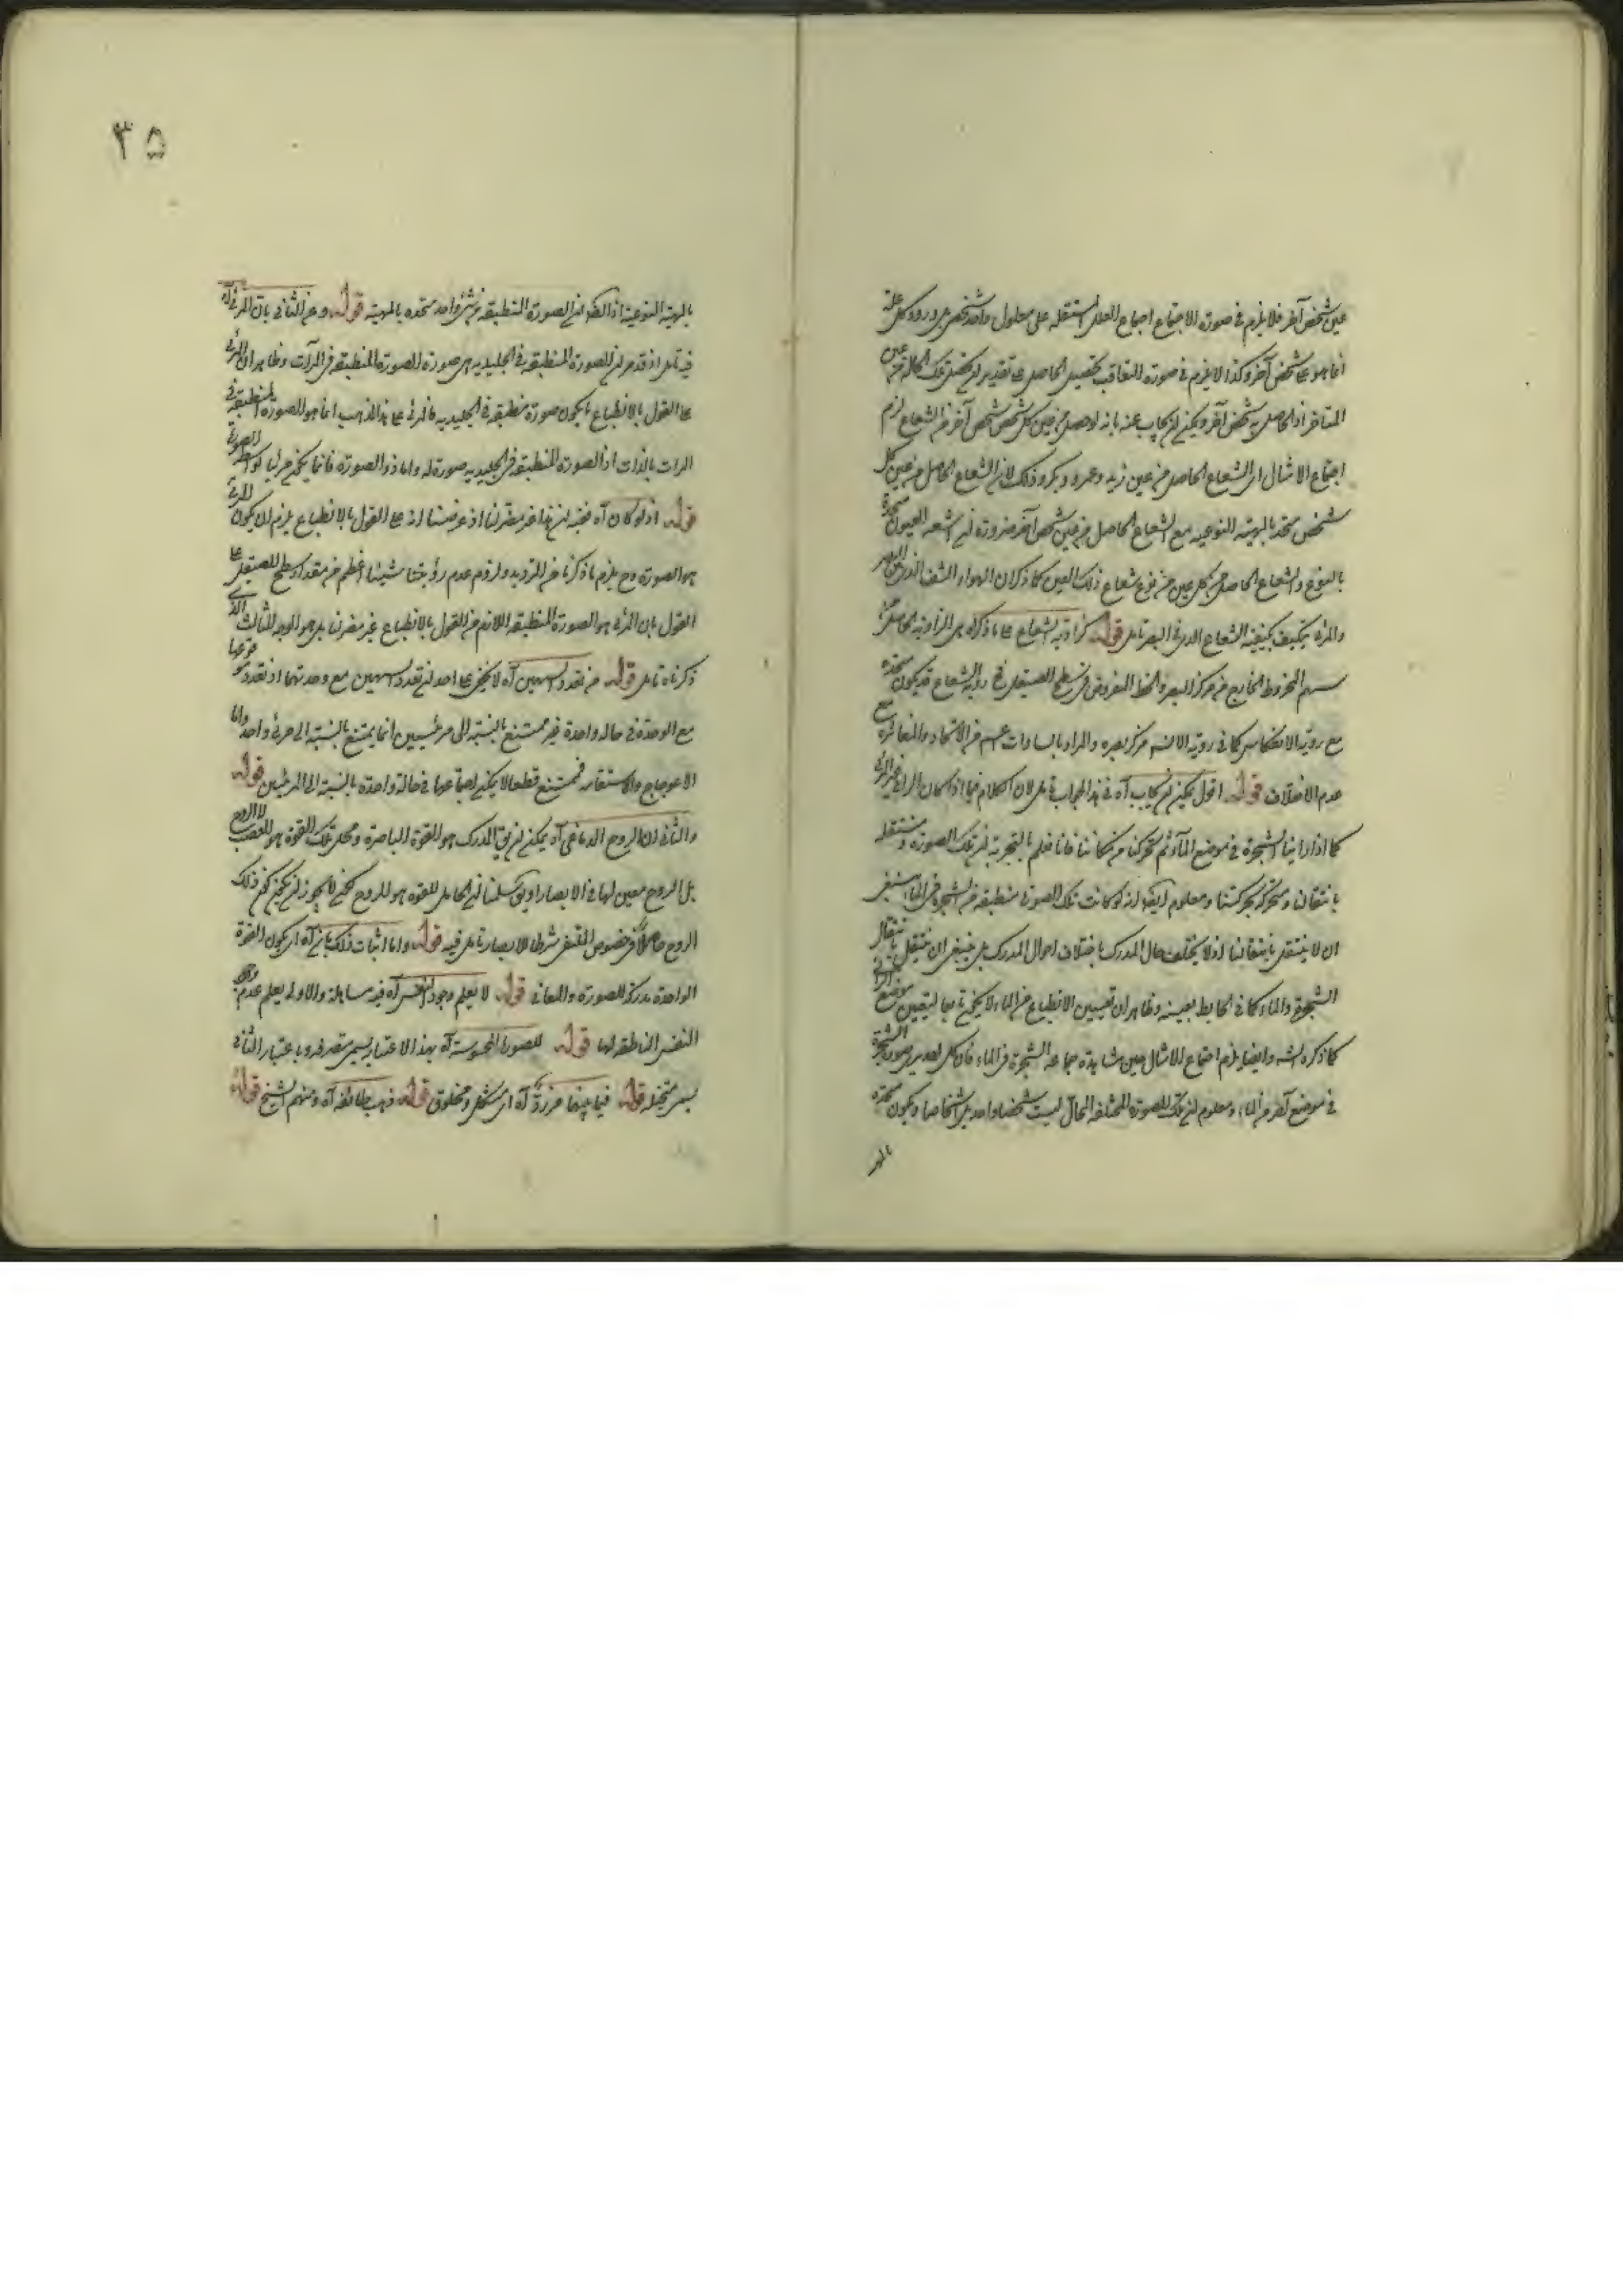 عين شخص آخر فلا يلزم في صورة الاجتماع اجتماع العلل المستقلة على معلول واحد شخصي بل ورود كل علة
انما هو على شخص آخر وكذا لا يلزم في صورة التعاقب تحصيل الحاصل على تقدير ان تحقق تلك الحالة من عين
المتأخر اذ الحاصل به شخص آخر ويمكن ان يجاب عنه بانه لو حصل من عين كل شخص شخص آخر من الشعاع لزم
اجتماع الامثال اى الشعاع الحاصل من عين زيد وعمرو وبكر وذلك لان الشعاع الحاصل من عين كل
شخص متحد بالمهية النوعيه مع الشعاع الحاصل من عين شخص آخر ضرورة ان اشعه العيون متحدة
بالنوع والشعاع الحاصل من كل عين من نوع شعاع ذلك العين كما ذكر ان الهواء المشف الذى بين البصر
والمرئى يتكيف بكيفية الشعاع الذى في البصر تأمل قوله كزاوية الشعاع على ما ذكره هى الزاوية الحاصلة من
سهم المخروط الخارج من مركز البصر والخط المفروض في سطح الصيقل رؤية الشعاع قد يكون متحدة
مع رؤية الانعكاس كما في رؤية الانسان مركز بصره والمراد بالمساوات اعم من الاتحاد والمغائرة مع
عدم الاختلاف قوله اقول يمكن ان يجاب آه في هذا الجواب تأمل لان الكلام فيما اذا كان الرائى غير المرئى
كما اذا راينا الشجرة في موضع الماء ثم تحركنا من مكاننا فانا نعلم بالتجربة ان تلك الصورة منتقله
بانتقالنا ومتحركه بحركتنا ومعلوم ايضا انه لو كانت تلك الصورة منطبقه من الشجرة في الماء ينبغي
ان لا ينتقل بانتقالنا اذ لا يختلف حال المدرك باختلاف احوال المدرك بل ينبغى ان ينتقل بانتقال
الشجرة والماء كما في الحايط بعينه وظاهر ان تعيين الانطباع من الماء لا يكون تابعا لتعيين موضع الرائى
كما ذكره الشه وايضا يلزم اجتماع الامثال حين مشاهدة جماعه الشجرة في الماء فان كل احد يرى صورة الشجرة
في موضع آخر من الماء ومعلوم ان تلك الصورة المختلفة المحال ليست شخصا واحدا بل اشخاصا ويكون متحدة
بالمهية النوعية اذ الصورة المنطبقه من شئ واحد متحده بالمهية قوله وعن الثانى بان المرئى آه
فيه تأمل اذ قد مر ان الصورة المنطبقه في الجليديه هى صورة الصورة المنطبقه في المرآت وظاهر ان المرئى
على القول بالانطباع ما يكون صورة منطبقه في الجليديه فالمرئى على هذا المذهب انما هو الصورة المنطبقة في
المرات بالذات اذ الصورة المنطبقه في الجليديه صورة له واما ذو الصورة فانما يكون مرئيا بواسطة الصورة
قوله اذ لو كان آه فيه ان هذا غير مضر لنا اذ غرضنا انه على القول بالانطباع يلزم ان يكون المرئى
هو الصورة وح يلزم ما ذكرنا من الترديد ولزوم عدم رؤيتنا شيئا اعظم من مقدار سطح الصيقل على
القول بان المرئى هو الصورة المنطبقه اللازم من القول بالانطباع غير مضر لنا بل هو الوجه الثالث الذى
ذكرناه تأمل قوله من تعدد السهمين آه لا يخفى على احد ان تعدد السهمين مع وحدتهما اذ تعدد
مع الوحدة في حاله واحدة غير ممتنع بالنسبة الى مرئيين انما يمتنع بالنسبة الى مرئى واحد واما
الاعوجاج والاستقامه فممتنع قطعا لا يمكن اجتماعهما في حالة واحدة بالنسبة الى المرئيين قوله
والثانى ان الروح الدماغى آه يمكن ان يق المدرك هو القوة الباصرة ومحل تلك القوة هو العصب لا الروح
بل الروح معين لها في الابصار او يق سلمنا ان الحامل للقوه هو الروح لكن لا يجوز ان يكون كون ذلك
الروح حاصلا في خصوص الملتقى شرطا للابصار تأمل فيه قوله واما اثبات ذلك بان آه اى كون القوة
الواحدة مدركة للصورة والمعانى قوله لا يعلم وجود النفس آه فيه مساهلة والاولى يعلم عدم
النفس الناطقه لها قوله للصور المحسوسة آه بهذا الاعتبار يسمى متصرفه وباعتبار الثانى
يسمى متخيله قوله فيما بينها آه اى متشكل ومخلوق قوله ذهب طائفه آه ومنهم الشيخ قوله